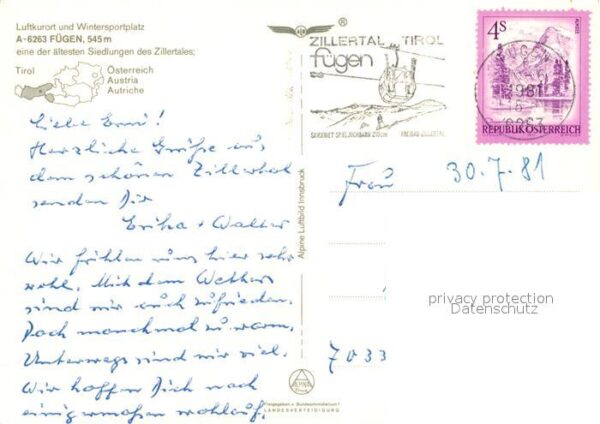 Luftkurort und Wintersportplatz
A-6263 FÜGEN, 545 m
eine der ältesten Siedlungen des Zillertales;
Tirol
Österreich
Austria
Autriche
®
ZILLERTAL TIROL
fügen
4S
REPUBLIK ÖSTERREICH
1981
Liebe Erni!
Herzliche Grüße aus
dem schönen Zillertal
senden Dir
Erika + Walter
Wir fühlen uns hier sehr
wohl. Mit dem Wetter
sind wir auch zufrieden.
Doch manchmal zu warm.
Unterwegs sind wir viel.
Wir hoffen Dich noch
einigermaßen wohlauf.
Alpine Luftbild Innsbruck
Frau 30.7.81
privacy protection
Datenschutz
7033
ALPINE
Freigegeben v. Bundesministerium f.
LANDESVERTEIDIGUNG